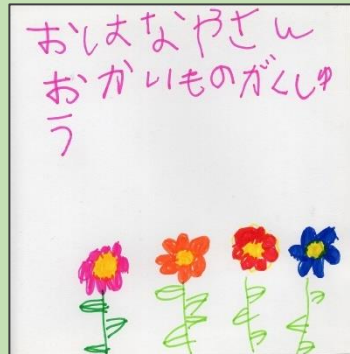 おはなやさん
おかいものがくしゅ
う